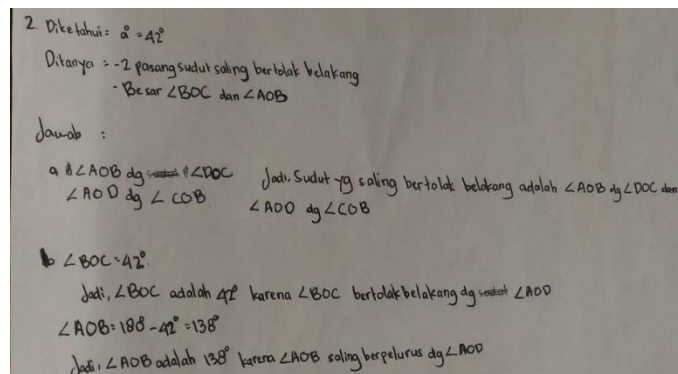 2. Diketahui = a° = 42°
Ditanya = - 2 pasang sudut saling bertolak belakang
- Besar ∠BOC dan ∠AOB
Jawab :
a ∠AOB dg ∠DOC Jadi, Sudut yg saling bertolak belakang adalah ∠AOB dg ∠DOC dan
∠AOD dg ∠COB ∠AOD dg ∠COB
b ∠BOC = 42°.
Jadi, ∠BOC adalah 42° karena ∠BOC bertolak belakang dg ∠AOD
∠AOB = 180° - 42° = 138°
Jadi, ∠AOB adalah 138° karena ∠AOB saling berpelurus dg ∠AOD